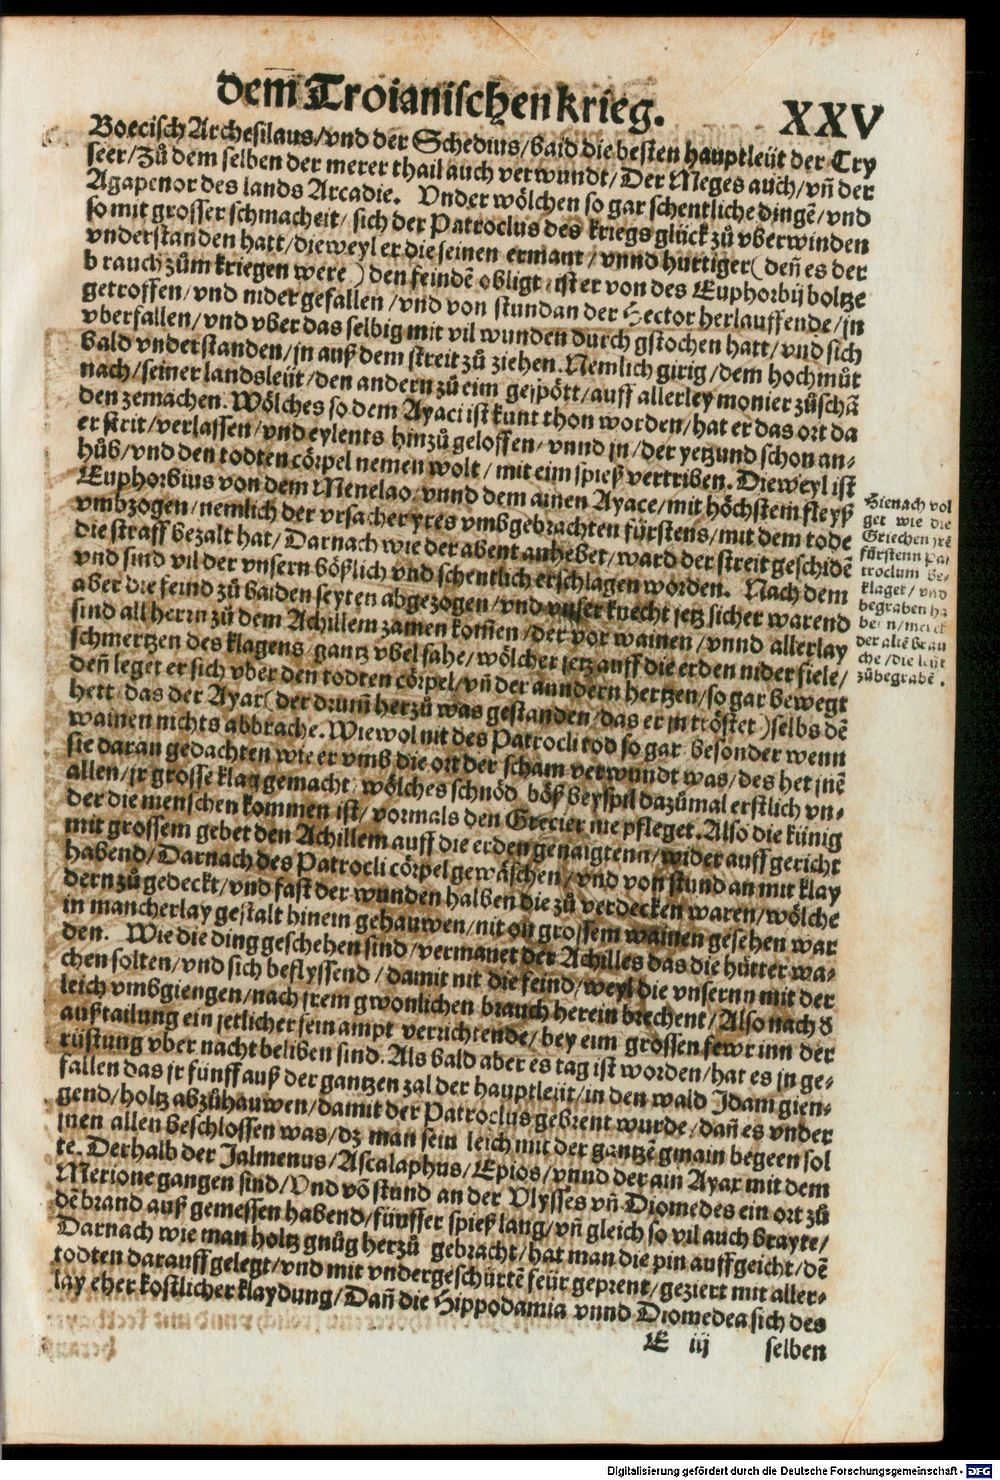 dem Troianischen krieg. XXV
Boecisch Archesilaus/vnd der Schedius/baid die besten hauptleüt der Cry
seer/Zů dem selben der merer thail auch verwundt/Der Meges auch/vñ der
Agapenor des lands Arcadie. Vnder wölchen so gar schentliche dingẽ/vnd
so mit grosser schmacheit/ sich der Patroclus des kriegs glück zů vberwinden
vnderstanden hatt/dieweyl er die seinen ermant/vnnd hurtiger(deñ es der
brauch zům kriegen were) den feindẽ obligt/ist er von des Euphorbij boltze
getroffen/vnd nider gefallen/vnd von stundan der Hector herlauffende/jn
vberfallen/vnd vber das selbig mit vil wunden durch gstochen hatt/vnd sich
bald vnderstanden/jn auß dem streit zů ziehen. Nemlich girig/dem hochmůt
nach/seiner landsleüt/den andern zů eim gespött/auff allerley monier zůschã
den zemachen. Wölches so dem Ayaci ist kunt thon worden/hat er das ort da
er strit/verlassen/vnd eylents hinzů geloffen/vnnd jn/der yetzund schon an-
hůb/vnd den todten cörpel nemen wolt/mit eim spieß vertriben. Dieweyl ist
Euphorbius von dem Menelao/vnnd dem ainen Ayace/mit höchstem fleyß
vmbzogen/nemlich der vrsacher yres vmbgebrachten fürstens/mit dem tode
die straff bezalt hat/Darnach wie der abent anhebet/ward der streit geschidẽ
vnd sind vil der vnsern bößlich vnd schentlich erschlagen worden. Nach dem
aber die feind zů baiden seyten abgezogen/vnd vnser knecht jetz sicher warend
sind all herrn zů dem Achillem zamen kom̃en/der vor wainen/vnnd allerlay
schmertzen des klagens/gantz vbel sahe/wölcher jetz auff die erden nider fiele/
deñ leget er sich vber den todten cörpel/vñ der aundern hertzen/so gar bewegt
hett/das der Ayax(der drum̃ herzů was gestanden/das er jn tröstet)selbs dẽ
wainen nichts abbrache. Wiewol nit des Patrocli tod so gar besonder wenn
sie daran gedachten wie er vmb die ort der scham verwundt was/des het jnẽ
allen/jr grosse klag gemacht/wölches schnöd böß beyspil dazůmal erstlich vn-
der die menschen kommen ist/vormals den Grecier nie pfleget. Also die künig
mit grossem gebet den Achillem auff die erden genaigtenn/wider auffgericht
habend/Darnach des Patrocli cörpel gewäschen/vnd von stund an mit klay
dern zů gedeckt/vnd fast der wunden halben die zů verdecken waren/wölche
in mancherlay gestalt hinein gehauwen/nit on grossem wainen gesehen war
den. Wie die ding geschehen sind/vermanet der Achilles das die hütter wa-
chen solten/vnd sich beflyssend/damit nit die feind/weyl die vnsernn mit der
leich vmbgiengen/nach jrem gwonlichen brauch herein brechent/Also nach d̕
außtailung ein jetlicher sein ampt verrichtende/bey eim grossen fewr inn der
rüstung vber nacht beliben sind. Als bald aber es tag ist worden/hat es jn ge-
fallen das jr fünff auß der gantzen zal der hauptleüt/in den wald Idam gien-
gend/holtz abzůhauwen/damit der Patroclus gebrent wurde/dañ es vnder
jnen allen beschlossen was/dz man sein leich mit der gantzẽ gmain begeen sol
te. Derhalb der Ialmenus/Ascalaphus/Epios/vnnd der ain Ayax mit dem
Merione gangen sind/Vnd võ stund an der Vlysses vñ Diomedes ein ort zů
dẽ brand auß gemessen habend/fünffer spieß lang/vñ gleich so vil auch brayte/
Darnach wie man holtz gnůg herzů gebracht/hat man die pin auffgeicht/dẽ
todten darauff gelegt/vnd mit vndergeschürtẽ feür geprent/geziert mit aller-
lay eher kostlicher klaydung/Dañ die Hippodamia vnnd Diomedea sich des
E iij selben
Hienach vol
get wie die
Griechen jrẽ
fürstenn Pa
troclum be-
klaget/vnd
begraben ha
ben/merck
der altẽ brau
che/die leüt
zůbegrabẽ.
Digitalisierung gefördert durch die Deutsche Forschungsgemeinschaft - DFG